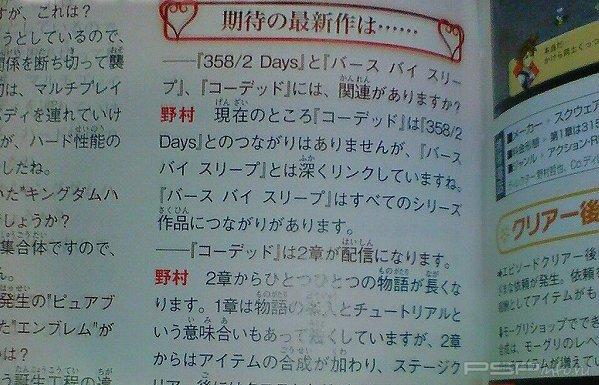 が、これは？
うとしているので、
関係を断ち切って襲
マルチプレイ
ボディを連れていけ
が、ハード性能の
しだね。
いた"キングダムハ
でしょうか？
集合体ですので、
発生の"ピュアブ
た"エンブレム"が
かは？
誕生工程の違
期待の最新作は……
――『358/2 Days』と『バース バイ スリー
プ』、『コーデッド』には、関連がありますか？
野村 現在のところ『コーデッド』は『358/2
Days』とのつながりはありませんが、『バース
バイ スリープ』とは深くリンクしていますね。
『バース バイ スリープ』はすべてのシリーズ
作品につながりがあります。
――『コーデッド』は2章が配信になります。
野村 2章からひとつひとつの物語が長くな
ります。1章は物語の導入とチュートリアルと
いう意味合いもあって短くしていますが、2章
からはアイテムの合成が加わり、ステージク
■メーカー・スクウェア
■料金形態・第1章は315
■ジャンル・アクションR
クリアー後
●エピソードクリアー後
な依頼が発生。依頼を
報酬としてアイテムがも
●モーグリショップででき
合成は、モーグリのレベ
アイテムが増えてい